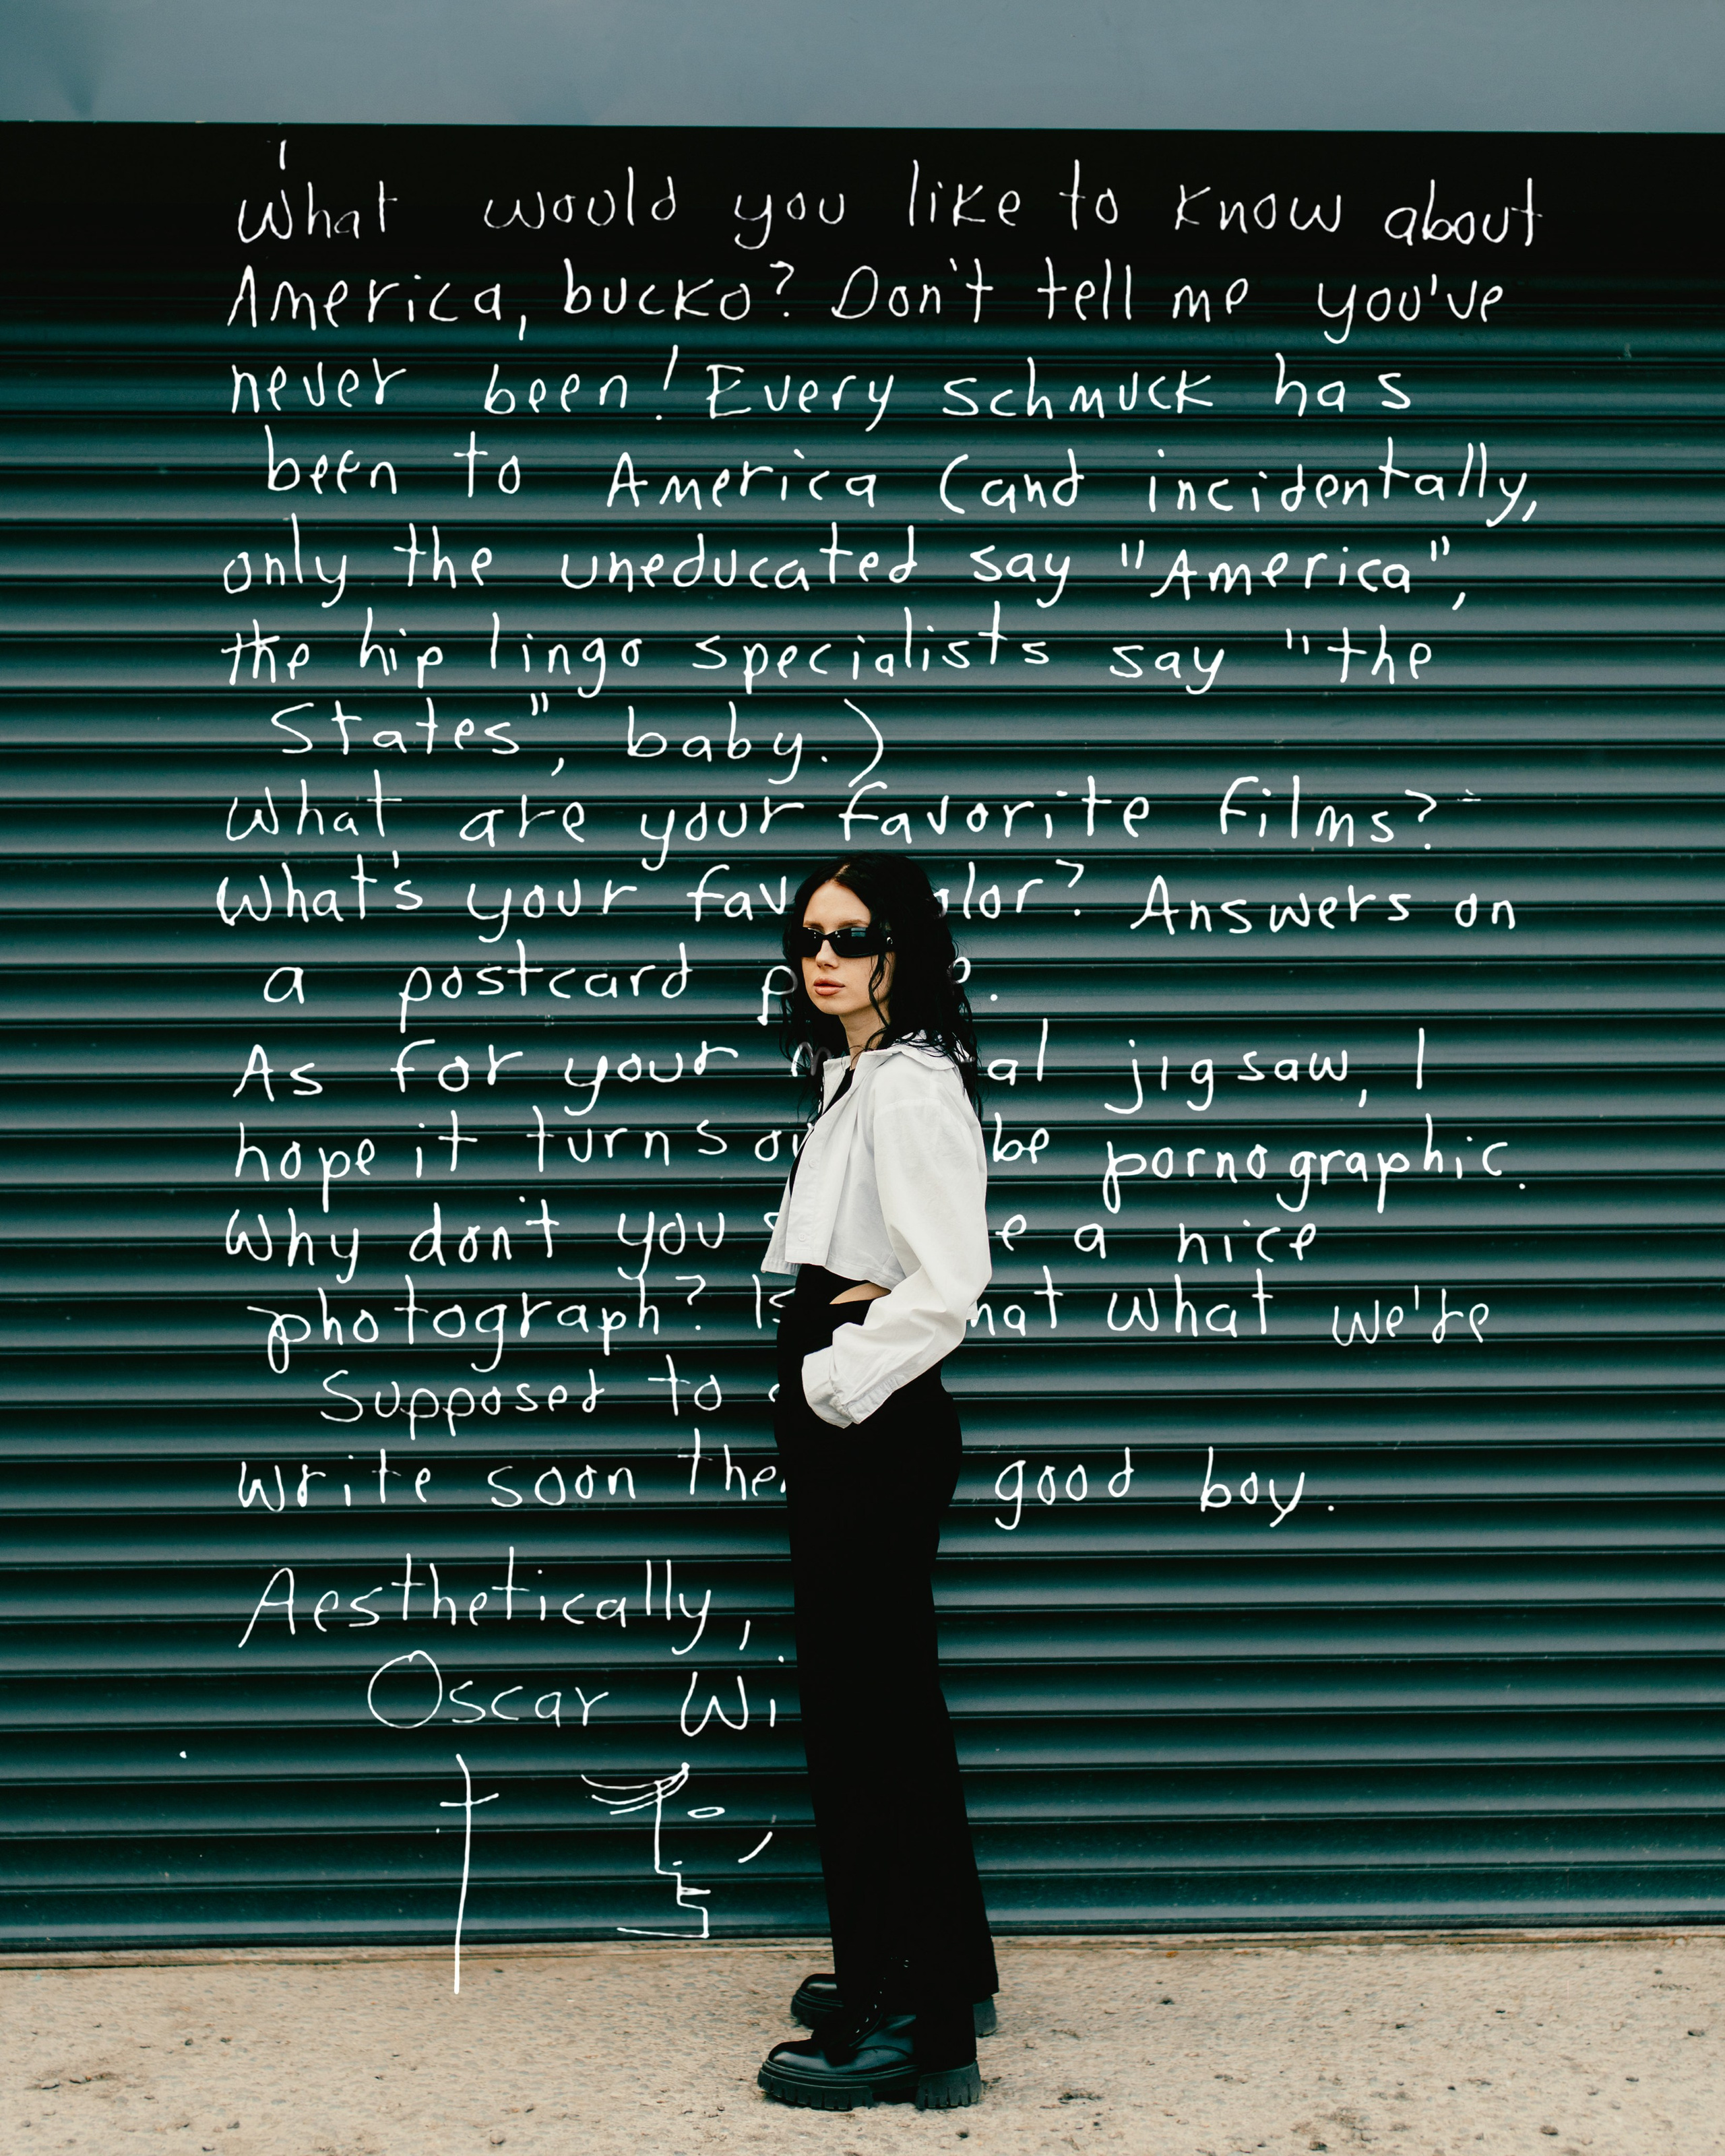 What would you like to know about
America, bucko? Don't tell me you've
never been! Every schmuck has
been to America (and incidentally,
only the uneducated say "America",
the hip lingo specialists say "the
States", baby.)
What are your favorite films?
What's your fav lor? Answers on
a postcard p
As for your al jigsaw, I
hope it turns be pornographic.
Why don't you e a nice
photograph? what we're
supposed to
write soon good boy.
Aesthetically,
Oscar Wi